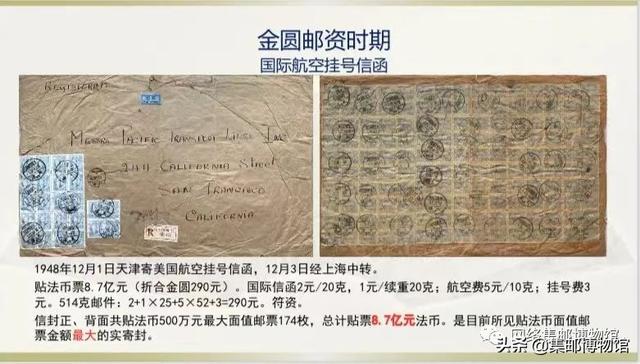 金圆邮资时期
国际航空挂号信函
REGISTERED
MESSRS PACIFIC TRANSPORT LINES INC
244 CALIFORNIA STREET
SAN FRANCISCO
CALIFORNIA
1948年12月1日天津寄美国航空挂号信函，12月3日经上海中转。
贴法币票8.7亿元（折合金圆290元）。国际信函2元/20克，1元/续重20克；航空费5元/10克；挂号费3
元。514克邮件：2+1×25+5×52+3=290元。符资。
信封正、背面共贴法币500万元最大面值邮票174枚，总计贴票8.7亿元法币。是目前所见贴法币面值邮
票金额最大的实寄封。
网络集邮博物馆
头条@集邮博物馆